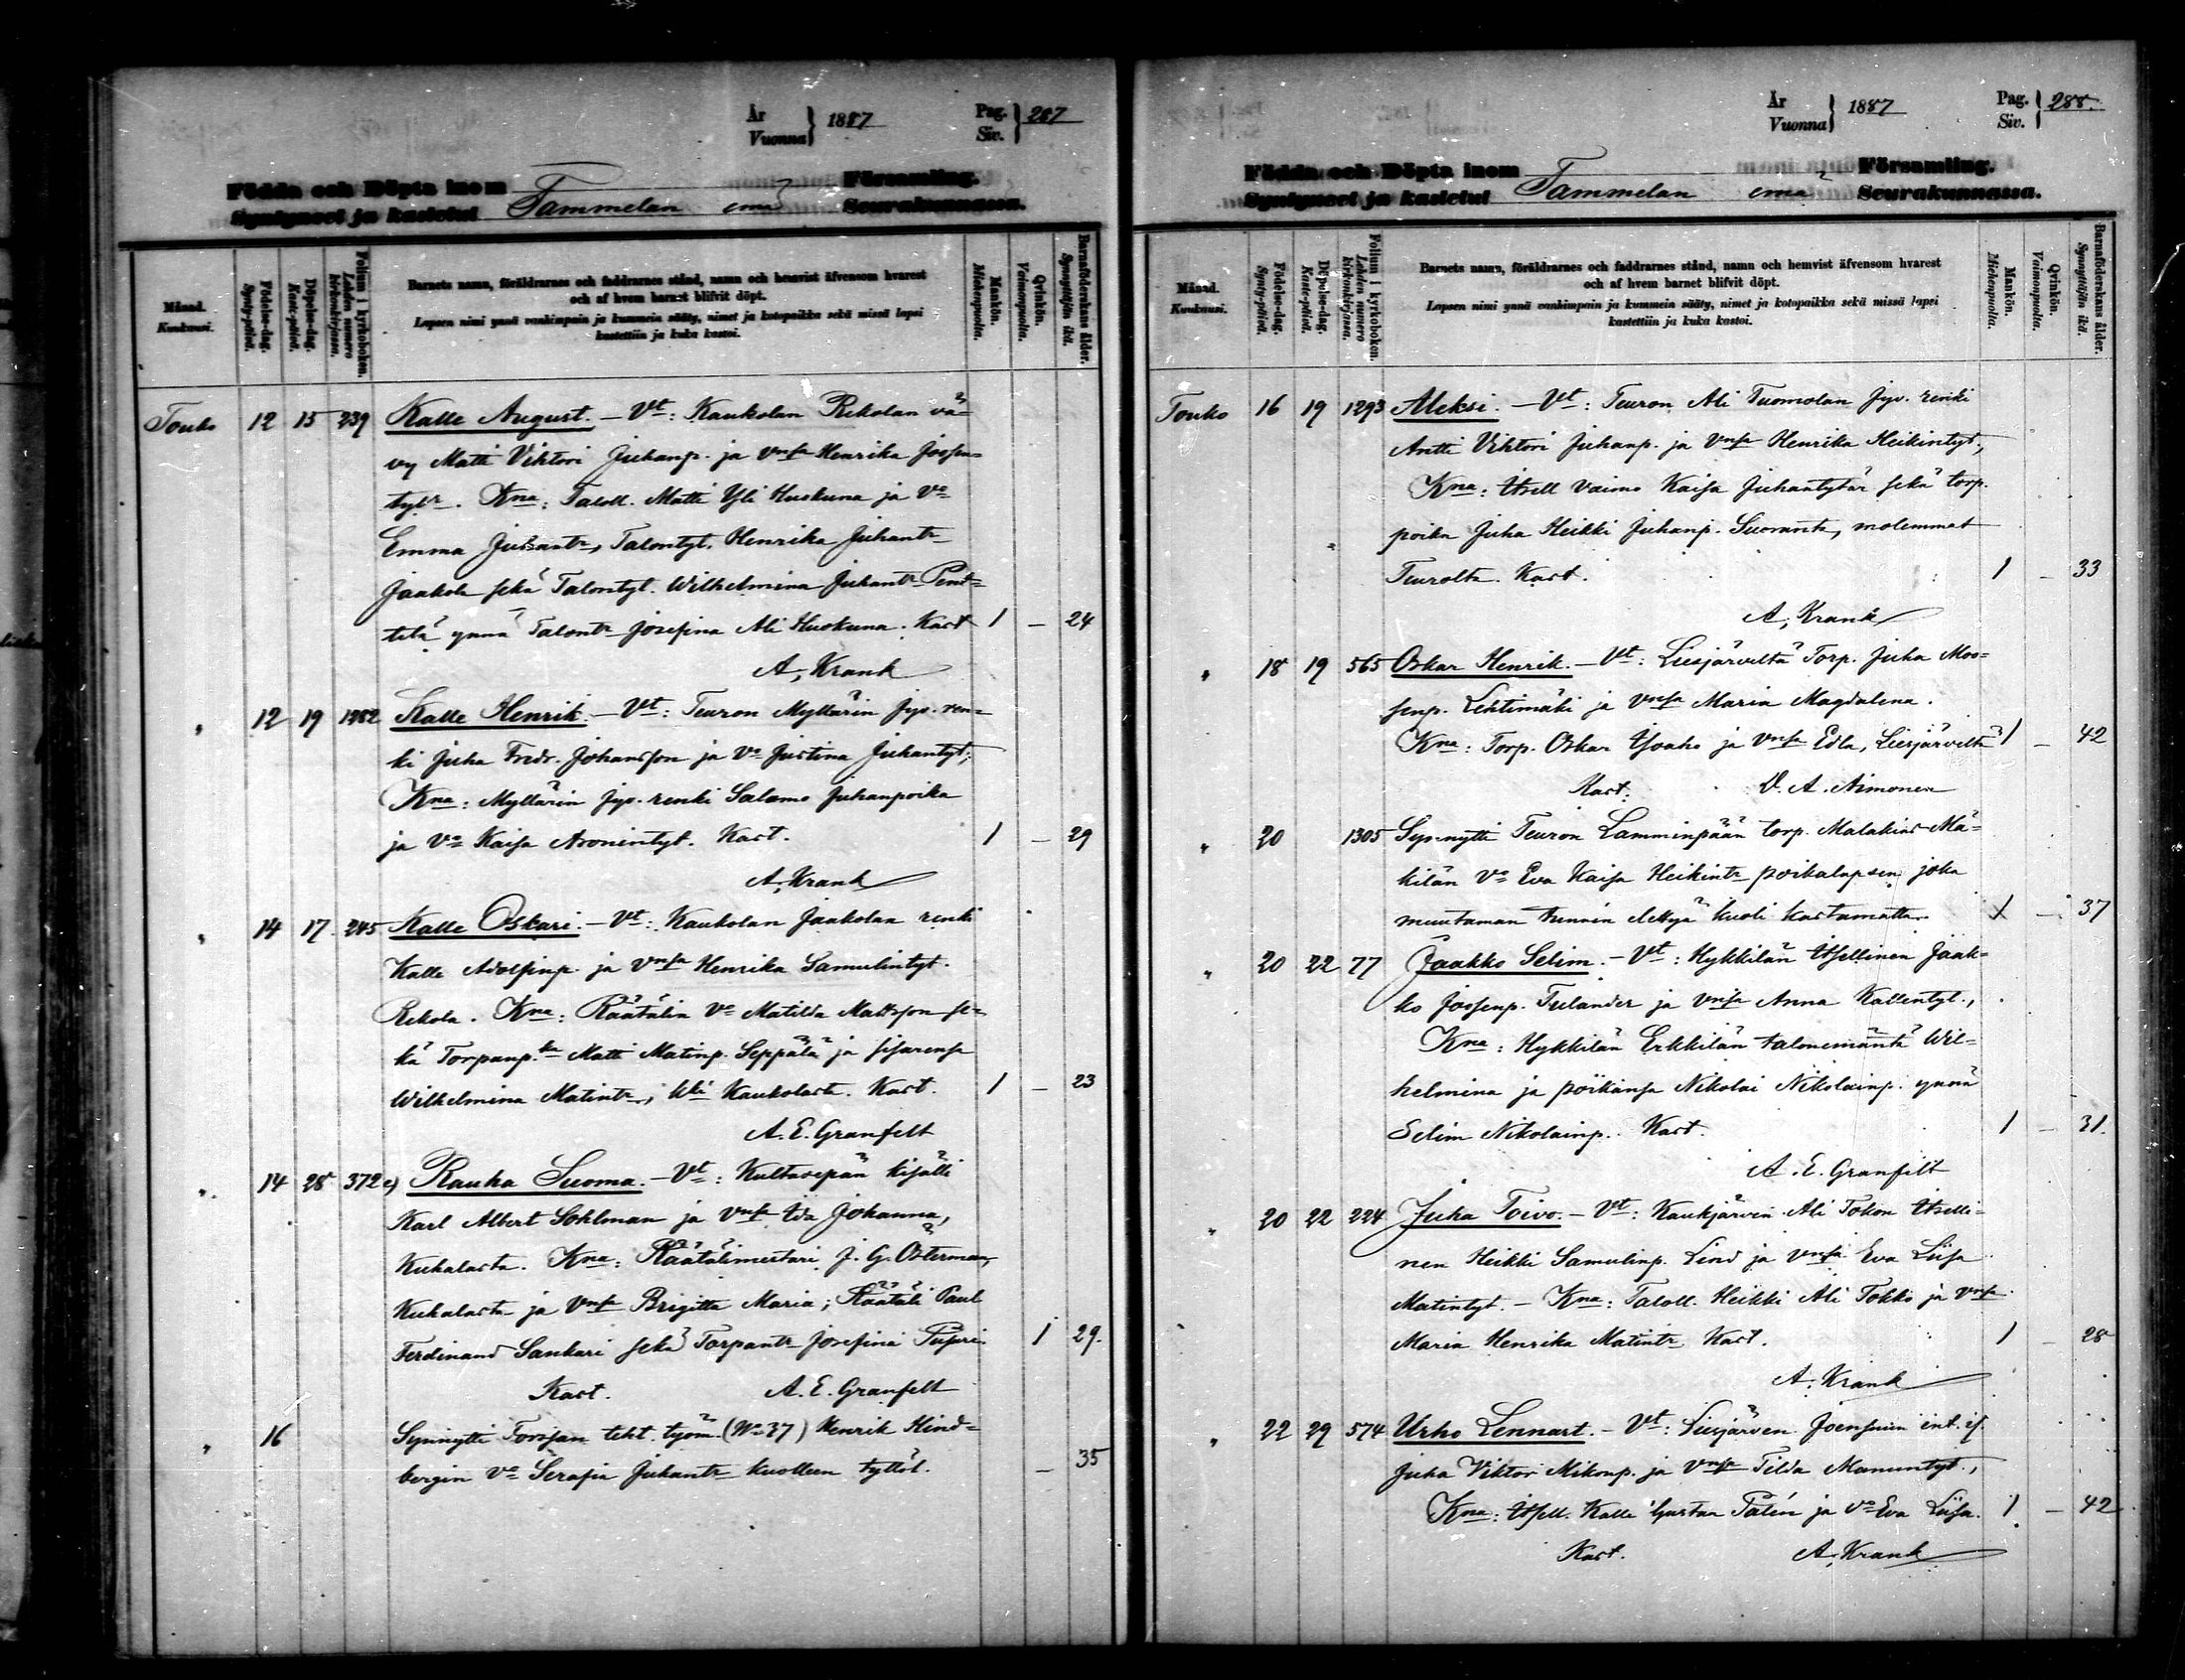 År
Vuonna } 1887
Pag.
Siv. } 287
Födda och Döpta inom
Syntyneet ja kastetut Tammelan emä
Församling.
Seurakunnassa.
Månad.
Kuukausi.
Födelse-dag.
Synty-päivä.
Döpelse-dag.
Kaste-päivä.
Folium i kyrkoboken.
Lehden numero kirkonkirjassa.
Barnets namn, föräldrarnes och faddrarnes stånd, namn och hemvist äfvensom hvarest
och af hvem barnet blifvit döpt.
Lapsen nimi ynnä vanhimpain ja kummein sääty, nimet ja kotopaikka sekä missä lapsi
kastettiin ja kuka kastoi.
Mankön.
Miehenpuolta.
Qvinkön.
Vaimonpuolta.
Barnaföderskans ålder.
Synnyttäjän ikä.
Touko 12 15 239 Kalle August. – Vt: Kaukolan Rekolan vä-
vy Matti Viktori Juhanp. ja Vnsa Henrika Joosen-
tytr. Kna: Taloll. Matti Yli Huokuna ja Vo
Emma Juhantr, Talontyt. Henrika Juhantr
Jaakola sekä Talontyt. Wilhelmina Juhantr Pent-
tilä ynnä Talontr Josefina Ali Huokuna. Kast 1 – 24
A. Krank
" 12 19 1282 Kalle Henrik. – Vt: Teuron Myllärin jyv. ren-
ki Juha Fredr. Johansson ja Vo Justina Juhantyt;
Kna: Myllärin jyv. renki Salamo Juhanpoika
ja Vo Kaisa Aronintyt. Kast. 1 – 29
A. Krank
" 14 17 245 Kalle Oskari. – Vt: Kaukolan Jaakolan renki
Kalle Adolfinp. ja Vnsa Henrika Samulintyt.
Rekola. Kna: Räätälin Vo Matilda Mattsson se-
kä Torpanp. Matti Matinp. Seppälä ja sisarensa
Wilhelmina Matintr, kki Kaukolasta. Kast. 1 – 23
A. E. Granfelt
" 14 28 372 Rauha Suoma. – Vt: Kultasepän kisälli
Karl Albert Sohlman ja Vnsa Ida Johanna,
Kuhalasta. Kna: Räätälimestari J. G. Österman,
Kuhalasta ja Vnsa Brigitta Maria; Räätäli Paul
Ferdinand Sankari sekä Torpantr Josefina 1 29.
Kast. A. E. Granfelt
" 16 Synnytti Forssan teht. työm. (No 37) Henrik Hind-
bergin Vo Serafia Juhantr kuolleen tyttöl. – 35
År
Vuonna } 1887
Pag.
Siv. } 288.
Födda och Döpta inom
Syntyneet ja kastetut Tammelan emä
Församling.
Seurakunnassa.
Månad.
Kuukausi.
Födelse-dag.
Synty-päivä.
Döpelse-dag.
Kaste-päivä.
Folium i kyrkoboken.
Lehden numero kirkonkirjassa.
Barnets namn, föräldrarnes och faddrarnes stånd, namn och hemvist äfvensom hvarest
och af hvem barnet blifvit döpt.
Lapsen nimi ynnä vanhimpain ja kummein sääty, nimet ja kotopaikka sekä missä lapsi
kastettiin ja kuka kastoi.
Mankön.
Miehenpuolta.
Qvinkön.
Vaimonpuolta.
Barnaföderskans ålder.
Synnyttäjän ikä.
Touko 16 19 1293 Aleksi. – Vt: Teuron Ali Tuomolan jyv. renki
Antti Viktori Juhanp. ja Vnsa Henrika Heikintyt,
Kna: Itsell vaimo Kaisa Juhantytär sekä torp.
poika Juha Heikki Juhanp. Suoranta, molemmat
Teurolta. Kast. 1 – 33
A. Krank
" 18 19 565 Oskar Henrik. – Vt: Liesjärveltä Torp. Juha Moo-
senp. Lehtimäki ja Vnsa Maria Magdalena.
Kna: Torp. Oskar Isoaho ja Vnsa Edla, Liesjärveltä 1 – 42
Kast. V. A. Aimonen
" 20 1305 Synnytti Teuron Lamminpään torp. Malakias Mä-
kilän Vo Eva Kaisa Heikintr poikalapsen joka
muutaman tunnin elettyä kuoli kastamatta. X – 37
" 20 22 77 Jaakko Selim. – Vt: Hykkilän Itsellinen Jaak-
ko Joosenp. Tulander ja Vnsa Anna Kallentyt.,
Kna: Hykkilän Erkkilän talonemäntä Wil-
helmina ja poikansa Nikolai Nikolainp. ynnä
Selim Nikolainp. Kast. 1 – 31.
A. E. Granfelt
" 20 22 224 Juha Toivo. – Vt: Kaukjärven Ali Tokon Itselli-
nen Heikki Samulinp. Lind ja Vnsa Eva Liisa
Matintyt. – Kna: Taloll. Heikki Ali Tokko ja Vnsa
Maria Henrika Matintr Kast. 1 – 28
A. Krank
" 22 29 574 Urho Lennart. – Vt: Liesjärven Joensuun ent. is.
Juha Viktor Mikonp. ja Vnsa Tilda Manuntyt.,
Kna: Itsell. Kalle Gustaa Palin ja Vo Eva Liisa. 1 – 42
Kast. A. Krank